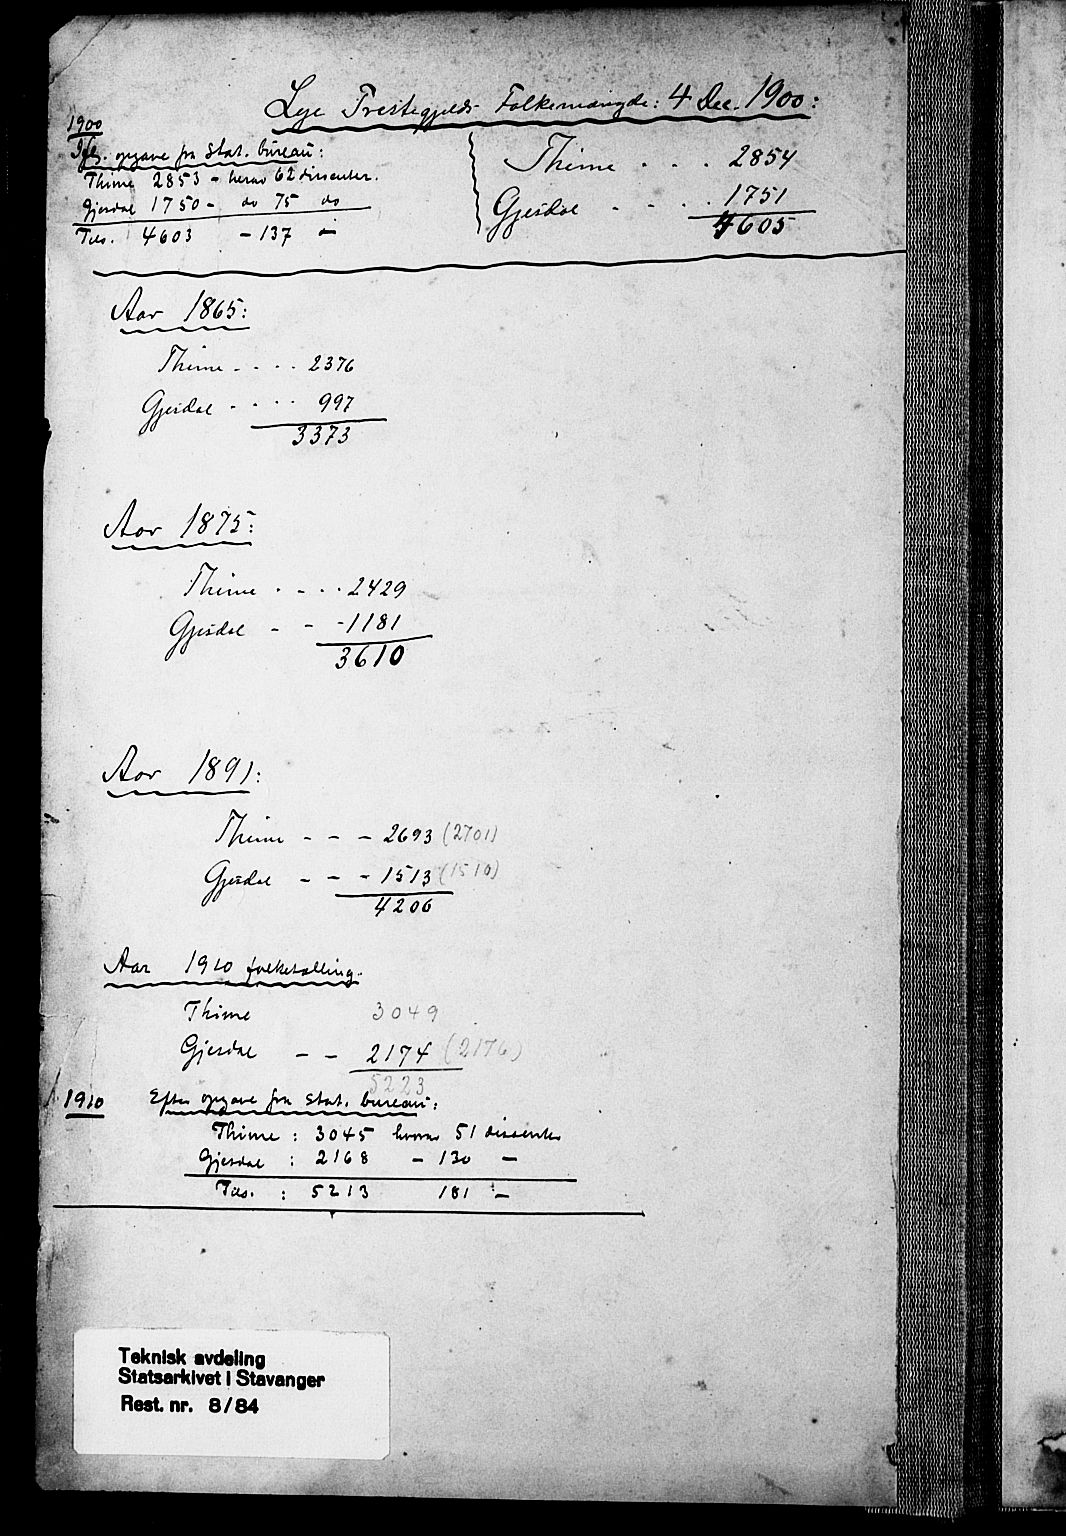 Lye Prestegjelds Folkemængde: 4 Dec. 1900:
1900
Iflg. opgave fra Stat. bureau:
Thime 2853 - herav 62 dissenter.
Gjesdal 1750 - do 75 do
Tils. 4603 - 137 -
Thime . . . 2854
Gjesdal - - . . 1751
4605
Aar 1865:
Thime - . . . 2376
Gjesdal . . . . 997
3373
Aar 1875:
Thime . - . . 2429
Gjesdal - - - 1181
3610
Aar 1891:
Thime - - - 2693 (2701)
Gjesdal - - - 1513 (1510)
4206
Aar 1910 folketælling.
Thime 3049
Gjesdal - - 2174 (2176)
5223
1910 Efter opgave fra Stat. bureau:
Thime : 3045 hvorav 51 dissenter
Gjesdal : 2168 - 130 -
Tils. : 5213 181 -
Teknisk avdeling
Statsarkivet i Stavanger
Rest. nr. 8/84